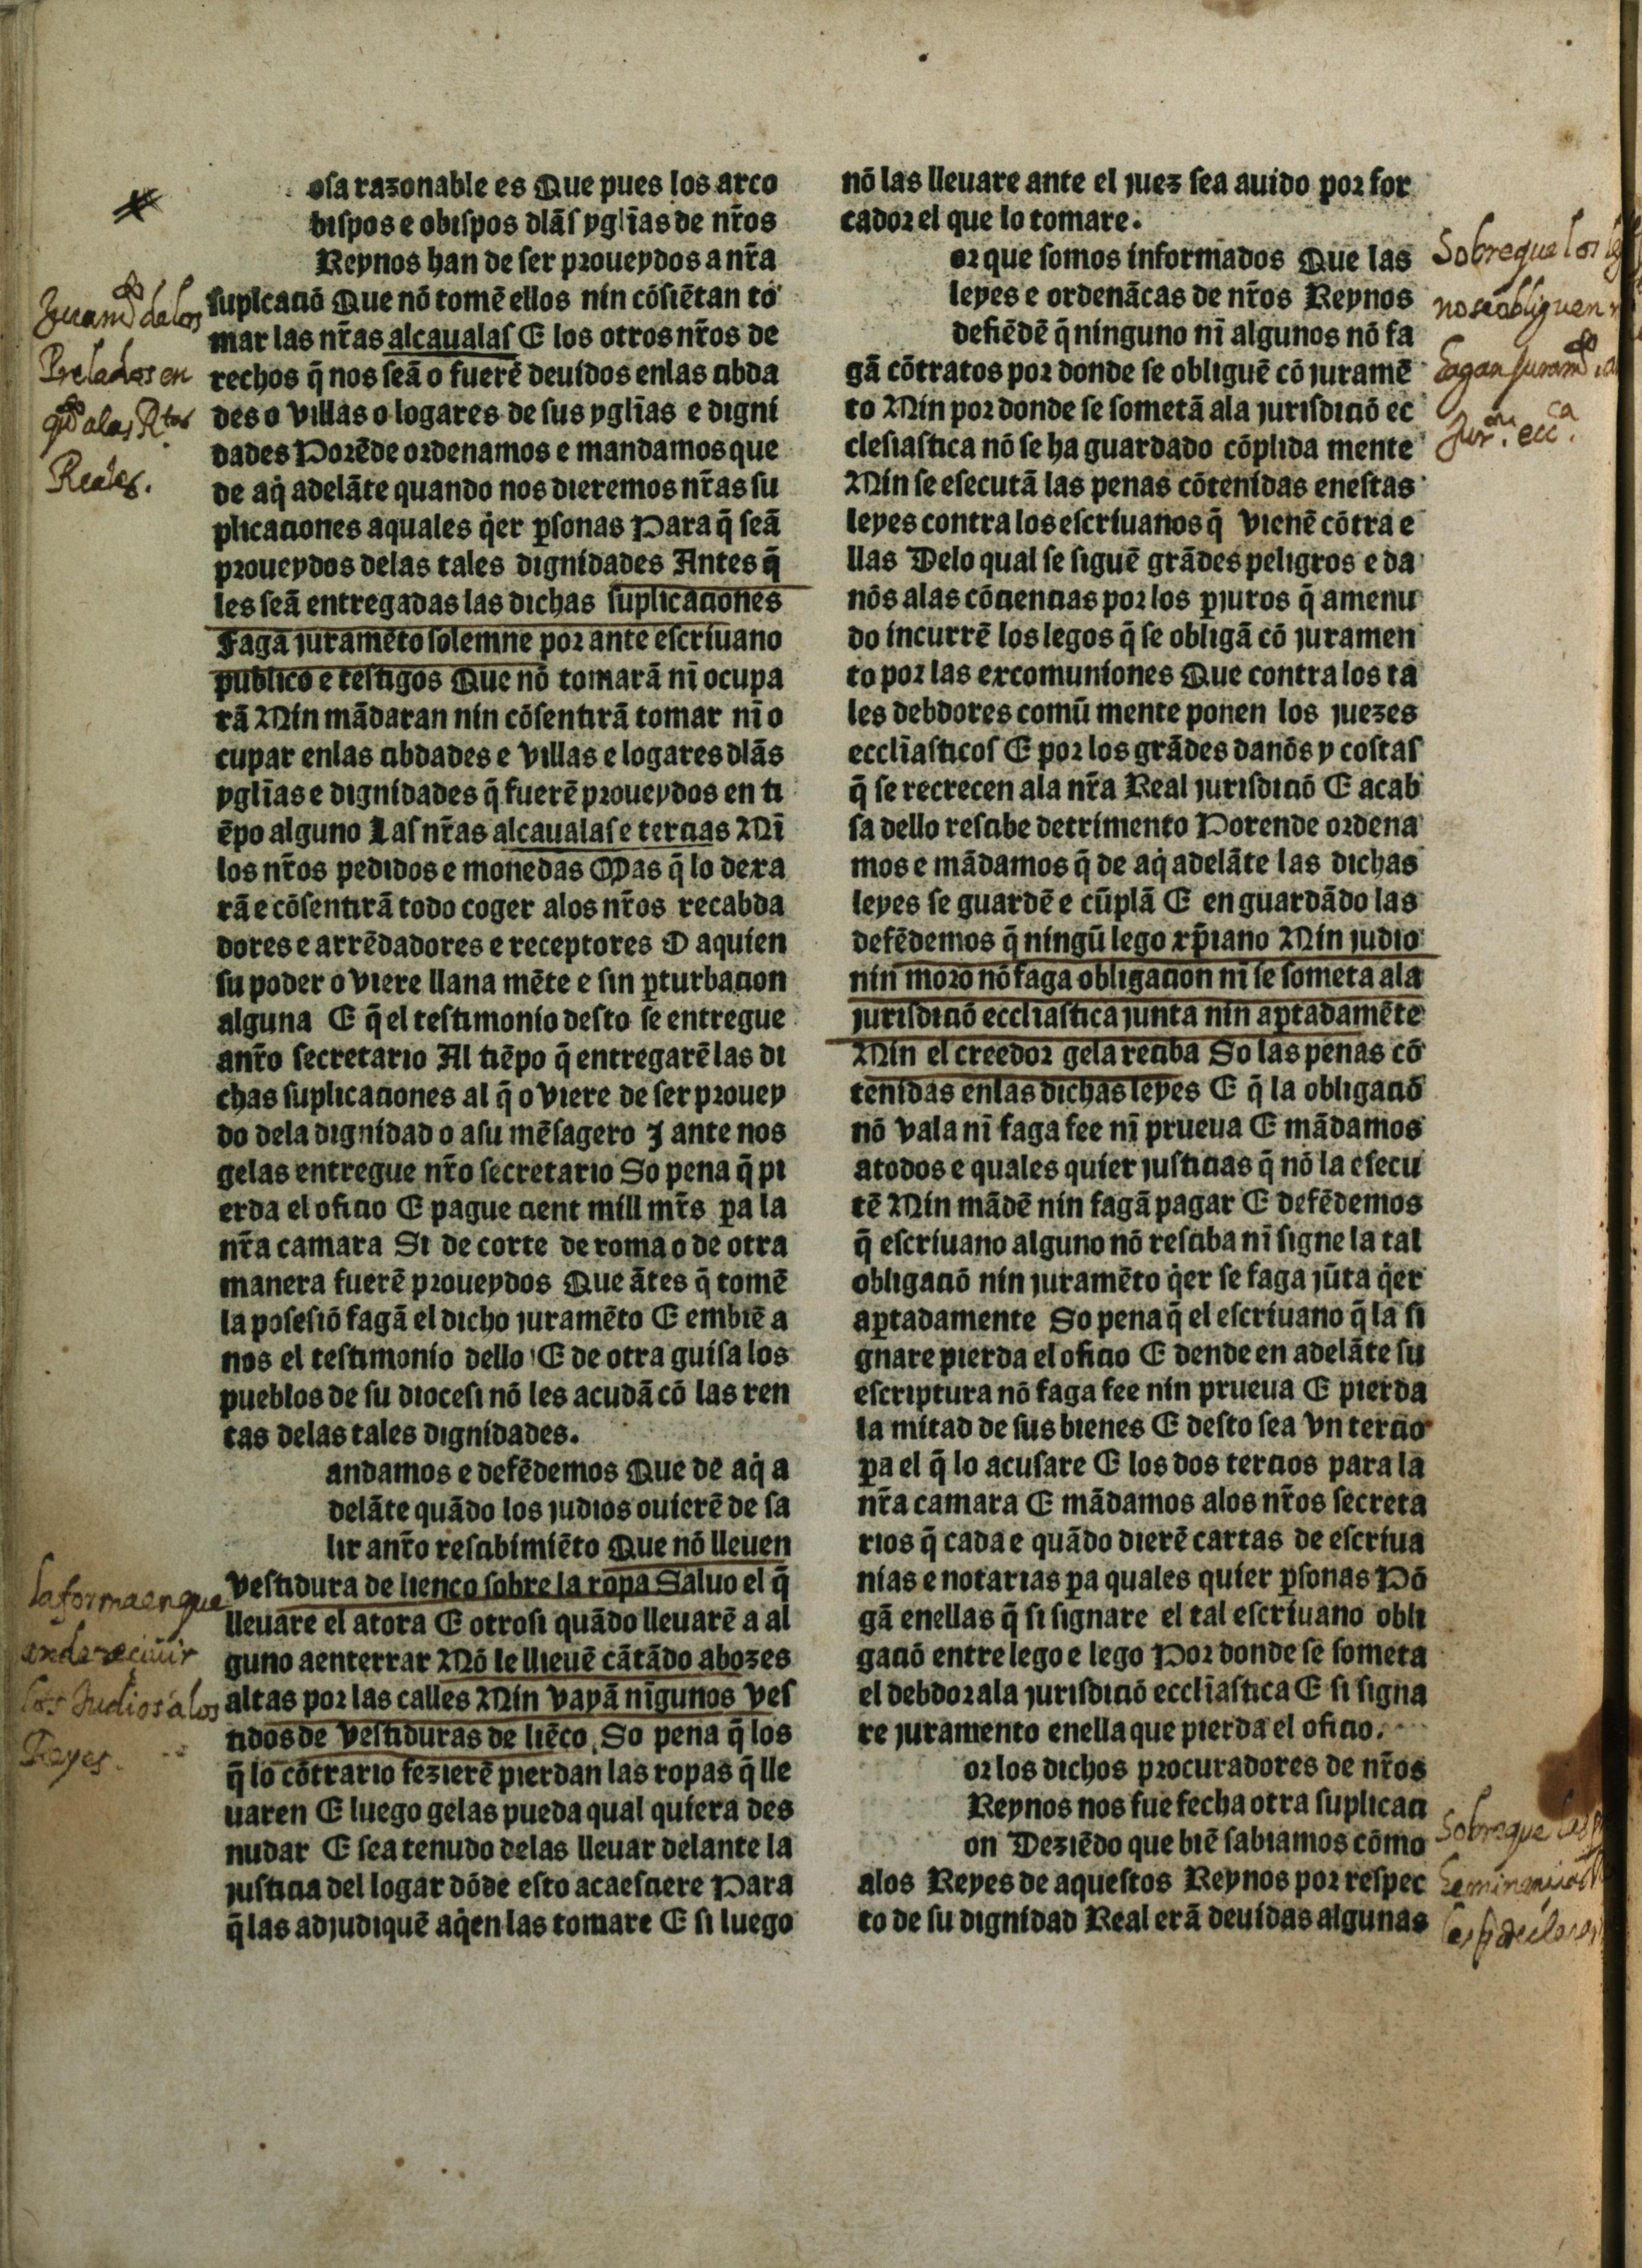 osa razonable es Que pues los arço
bispos e obispos dlãs ygl̃ias de nr̃os
Reynos han de ser proueydos a nr̃a
suplcaciõ Que nõ tomẽ ellos nin cõsiẽtan to
mar las nr̃as alcaualas E los otros nr̃os de
rechos q̃ nos seã o fuerẽ deuidos enlas cibda
des o villas o logares de sus ygl̃ias e digni
dades Porẽde ordenamos e mandamos que
de aq̃ adelãte quando nos dieremos nr̃as su
plicaciones a quales q̃er p̃sonas Para q̃ seã
proueydos delas tales dignidades Antes q̃
les seã entregadas las dichas suplicaciones
Fagã juramẽto solemne por ante escriuano
publico e testigos Que nõ tomarã nĩ ocupa
rã Nin mãdaran nin cõsentirã tomar nĩ o
cupar enlas cibdades e villas e logares dlãs
ygl̃ias e dignidades q̃ fuerẽ proueydos en ti
ẽpo alguno Las nr̃as alcaualas e tercias Nĩ
los nr̃os pedidos e monedas Mas q̃ lo dexa
rã e cõsentirã todo coger alos nr̃os recabda
dores e arrẽdadores e receptores O aquien
su poder oviere llana mẽte e sin p̃turbacion
alguna E q̃ el testimonio desto se entregue
anr̃o secretario Al tiẽpo q̃ entregarẽ las di
chas suplicaciones al q̃ oviere de ser prouey
do dela dignidad o asu mẽsagero J ante nos
gelas entregue nr̃o secretario So pena q̃ pi
erda el oficio E pague cient mill mr̃s p̃a la
nr̃a camara Si de corte de roma o de otra
manera fuerẽ proueydos Que ãtes q̃ tomẽ
la posesiõ fagã el dicho juramẽto E embiẽ a
nos el testimonio dello E de otra guisa los
pueblos de su diocesi nõ les acudã cõ las ren
tas delas tales dignidades.
andamos e defẽdemos Que de aq̃ a
delãte quãdo los judios ouierẽ de sa
lir anr̃o rescibimiẽto Que nõ lleuen
vestidura de lienço sobre la ropa Saluo el q̃
lleuare el atora E otrosi quãdo lleuarẽ a al
guno aenterrar Nõ le llieuẽ cãtãdo abozes
altas por las calles Nin vayã nĩgunos ves
tidos de vestiduras de liẽço. So pena q̃ los
q̃ lo cõtrario fezierẽ pierdan las ropas q̃ lle
uaren E luego gelas pueda qual quiera des
nudar E sea tenudo delas lleuar delante la
justicia del logar dõde esto acaesciere Para
q̃ las adjudiquẽ aq̃en las tomare E si luego
nõ las lleuare ante el juez sea auido por for
çador el que lo tomare.
or que somos informados Que las
leyes e ordenãças de nr̃os Reynos
defiẽdẽ q̃ ninguno nĩ algunos nõ fa
gã cõtratos por donde se obliguẽ cõ juramẽ
to Nin por donde se sometã ala jurisdiciõ ec
clesiastica nõ se ha guardado cõplida mente
Nin se esecutã las penas cõtenidas enestas
leyes contra los escriuanos q̃ vienẽ cõtra e
llas Delo qual se siguẽ grãdes peligros e da
nõs alas cõciencias por los p̃juros q̃ amenu
do incurrẽ los legos q̃ se obligã cõ juramen
to por las excomuniones Que contra los ta
les debdores comũ mente ponen los juezes
eccl̃iasticos E por los grãdes danõs y costas
q̃ se recrecen ala nr̃a Real jurisdiciõ E acab
sa dello rescibe detrimento Porende ordena
mos e mãdamos q̃ de aq̃ adelãte las dichas
leyes se guardẽ e cũplã E en guardãdo las
defẽdemos q̃ ningũ lego xp̃iano Nin judio
nin moro nõ faga obligacion nĩ se someta ala
jurisdiciõ eccl̃iastica junta nin ap̃tadamẽte
Nin el creedor gela reciba So las penas cõ
tenidas enlas dichas leyes E q̃ la obligaciõ
nõ vala nĩ faga fee nĩ prueua E mãdamos
atodos e quales quier justicias q̃ nõ la esecu
tẽ Nin mãdẽ nin fagã pagar E defẽdemos
q̃ escriuano alguno nõ resciba nĩ signe la tal
obligaciõ nin juramẽto q̃er se faga jũta q̃er
ap̃tadamente So pena q̃ el escriuano q̃ la si
gnare pierda el oficio E dende en adelãte su
escriptura nõ faga fee nin prueua E pierda
la mitad de sus bienes E desto sea vn tercio
p̃a el q̃ lo acusare E los dos tercios para la
nr̃a camara E mãdamos alos nr̃os secreta
rios q̃ cada e quãdo dierẽ cartas de escriua
nias e notarias p̃a quales quier p̃sonas Põ
gã enellas q̃ si signare el tal escriuano obli
gaciõ entre lego e lego Por donde se someta
el debdor ala jurisdiciõ eccl̃iastica E si signa
re juramento enella que pierda el oficio.
or los dichos procuradores de nr̃os
Reynos nos fue fecha otra suplicaci
on Deziẽdo que biẽ sabiamos cõmo
alos Reyes de aquestos Reynos por respec
to de su dignidad Real erã deuidas algunas
Juramto de los
Prelados en
qto a las Rtas
Reales.
la forma en que
an de reciuir
los Judios a los
Reyes.
Sobre que los
no se obliguen
hagan juramto
Jur.on ecc.ca
Sobre que las